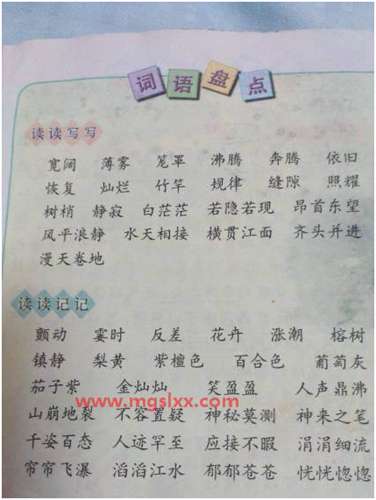 词语盘点
读读写写
宽阔 薄雾 笼罩 沸腾 奔腾 依旧
恢复 灿烂 竹竿 规律 缝隙 照耀
树梢 静寂 白茫茫 若隐若现 昂首东望
风平浪静 水天相接 横贯江面 齐头并进
漫天卷地
读读记记
颤动 霎时 反差 花卉 涨潮 榕树
镇静 梨黄 紫檀色 百合色 葡萄灰
茄子紫 金灿灿 笑盈盈 人声鼎沸
www.mgslxx.com
山崩地裂 不容置疑 神秘莫测 神来之笔
千姿百态 人迹罕至 应接不暇 涓涓细流
帘帘飞瀑 滔滔江水 郁郁苍苍 恍恍惚惚